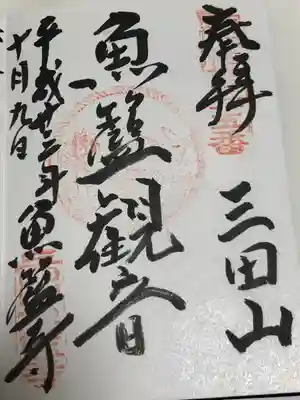 奉拝
三田山
魚籃観音
平成廿三年魚籃寺
十月九日